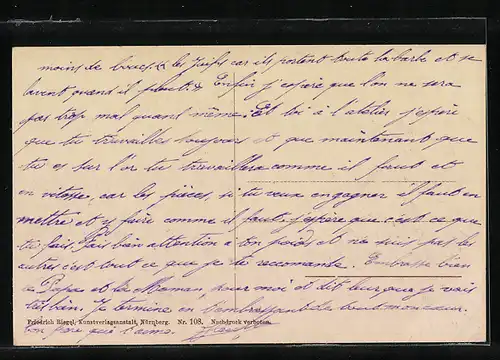 moins de boues et les Juifs car ils portent toute la barbe et se
lavent quand il pleut. Enfin j'espère que l'on ne sera
pas trop mal quand même. Et toi à l'atelier j'espère
que tu travailles toujours et que maintenant que
tu es sur l'or tu travaillera comme il faut et
en vitesse, car les pièces, si tu veux engagner il faut en
mettre et y faire comme il faut j'espère que c'est ce que
tu fais, fais bien attention a ton poids et ne suis pas les
autres c'est tout ce que je te recomante. Embrasse bien
Papa et la Maman, pour moi et dit leur que je vais
très bien. Je termine en t'embrassant de tout mon cœur.
Friedrich Riegel, Kunstverlagsanstalt, Nürnberg. Nr. 108. Nachdruck verboten.
ton frère qui t'aime.